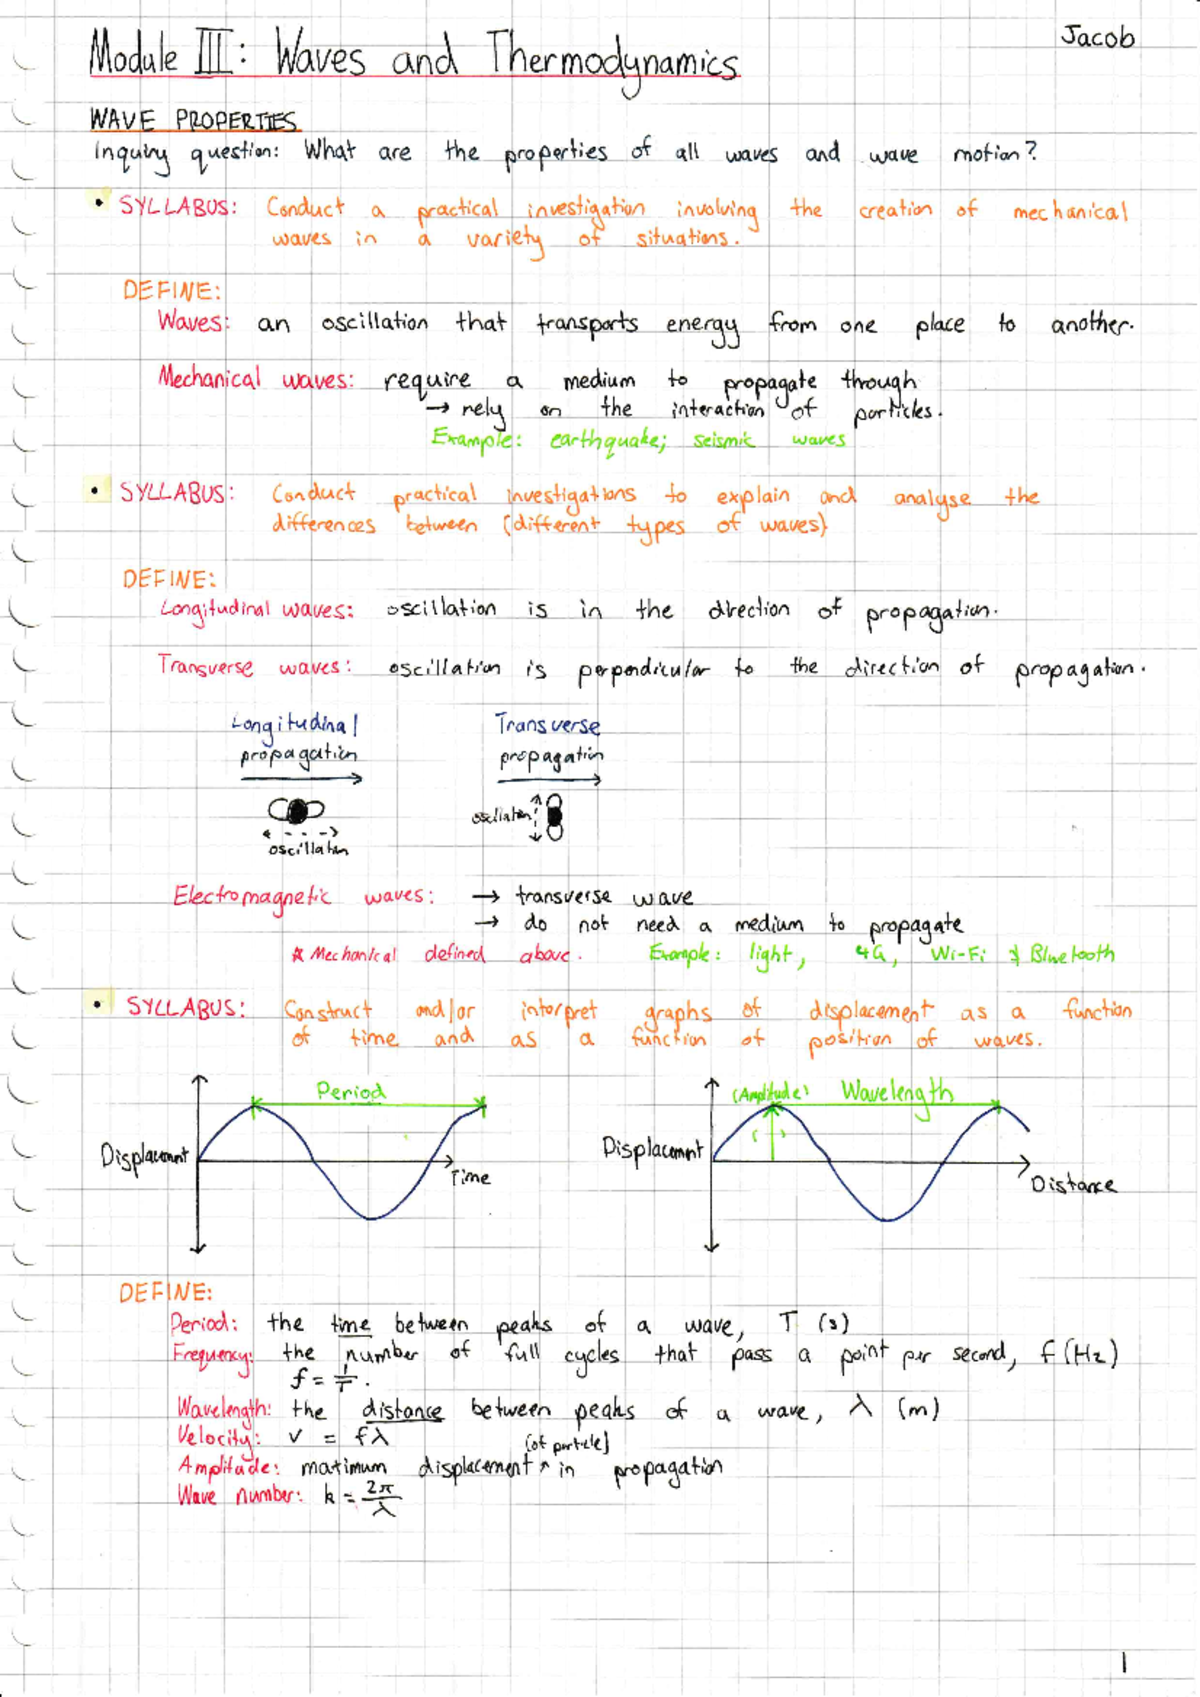 Jacob
Module III: Waves and Thermodynamics
WAVE PROPERTIES
Inquiry question: What are the properties of all waves and wave motion?
• SYLLABUS: Conduct a practical investigation involving the creation of mechanical
waves in a variety of situations.
DEFINE:
Waves: an oscillation that transports energy from one place to another.
Mechanical waves: require a medium to propagate through
→ rely on the interaction of particles.
Example: earthquake; seismic waves
• SYLLABUS: Conduct practical investigations to explain and analyse the
differences between (different types of waves)
DEFINE:
Longitudinal waves: oscillation is in the direction of propagation.
Transverse waves: oscillation is perpendicular to the direction of propagation.
Longitudinal
propagation
oscillation
Transverse
propagation
oscillation
Electromagnetic waves: → transverse wave
→ do not need a medium to propagate
* Mechanical defined above. Example: light, 4G, Wi-Fi & Bluetooth
• SYLLABUS: Construct and/or interpret graphs of displacement as a function
of time and as a function of position of waves.
Period
Displacement
Time
(Amplitude) Wavelength
Displacement
Distance
DEFINE:
Period: the time between peaks of a wave, T (s)
Frequency: the number of full cycles that pass a point per second, f (Hz)
f = 1/T.
Wavelength: the distance between peaks of a wave, λ (m)
Velocity: v = fλ
Amplitude: maximum displacement ^ [of particle] in propagation
Wave number: k = 2π/λ
1